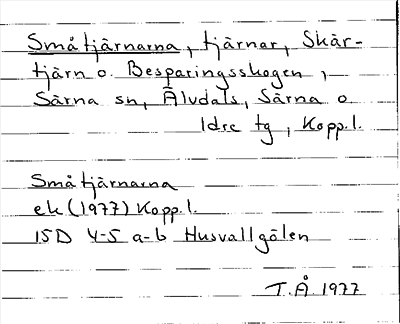 Småtjärnarna, tjärnar, Skär-
tjärn o. Besparingsskogen,
Särna sn, Älvdals, Särna o
Idre tg, Kopp.l.
Småtjärnarna
ek (1977) Kopp.l.
15D 4-5 a-b Husvallgölen
T.Å 1977